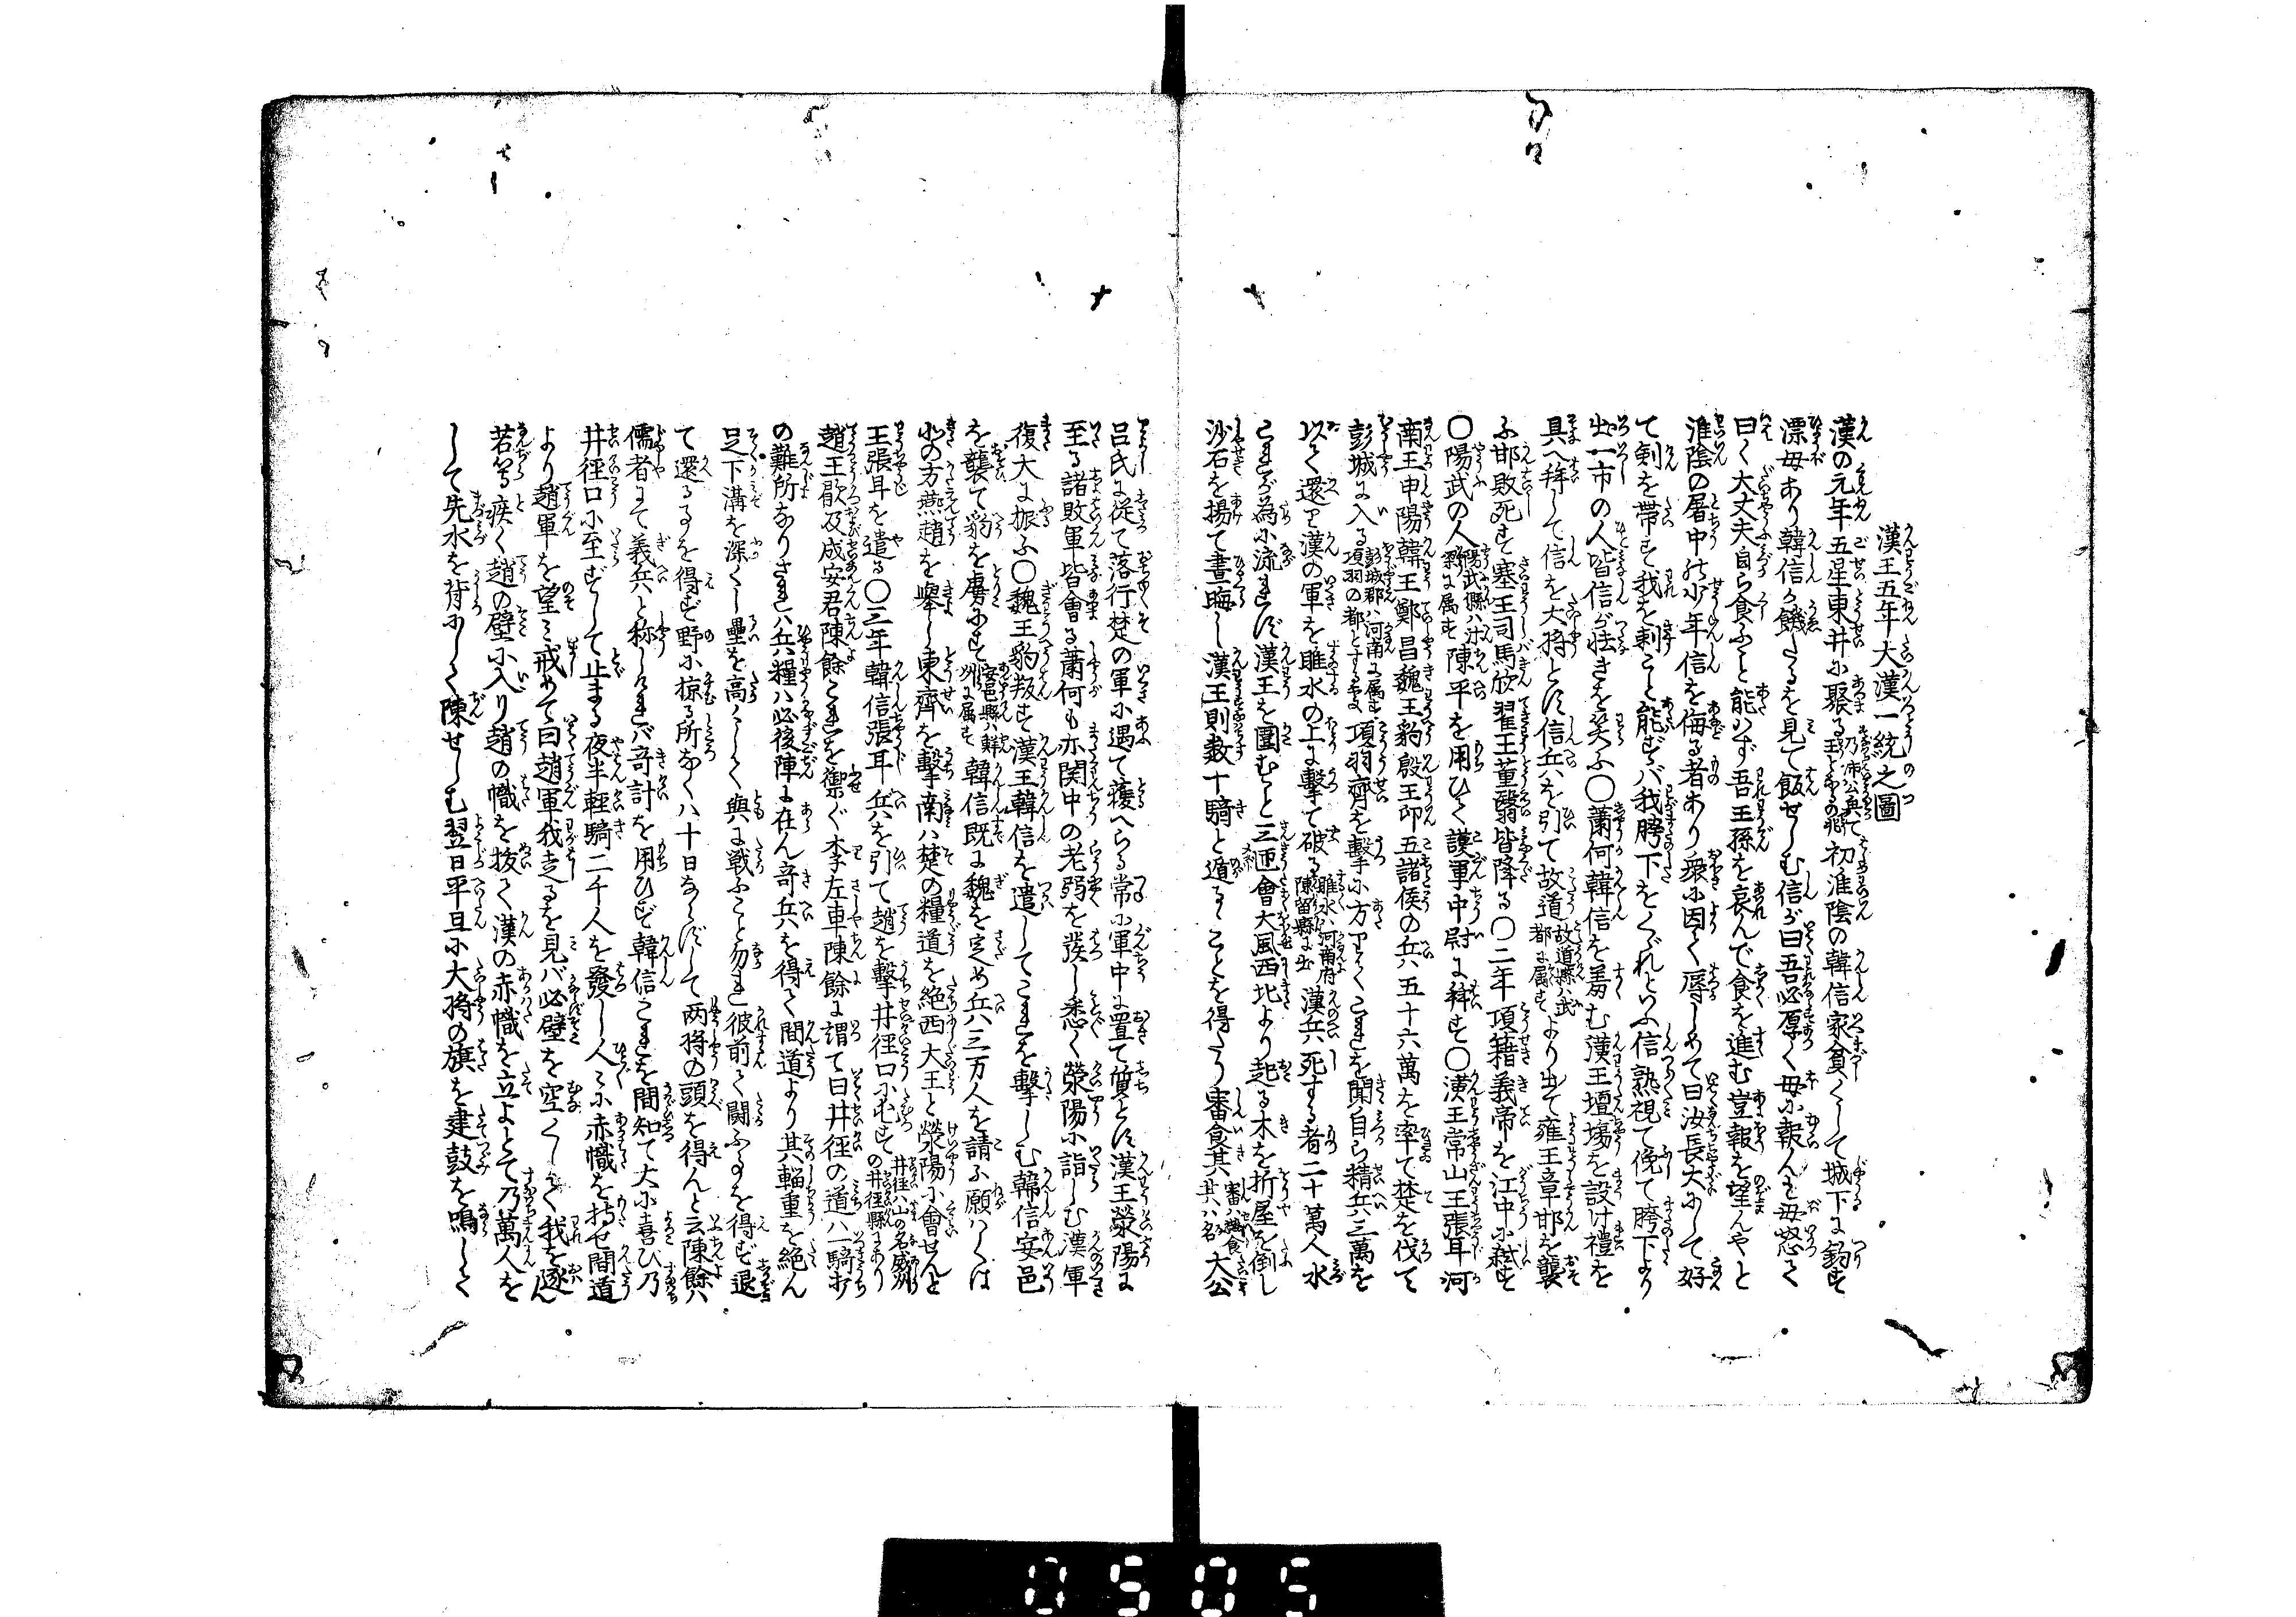 漢王五年大漢一統之圖
漢の元年五星東井に聚る乃沛公興て王となるの兆初淮陰の韓信家貧くして城下に釣す
漂母あり韓信が餓たるを見て飯せしむ信が曰吾必厚く母に報んと母怒て
曰く大丈夫自ら食ふと能はず吾王孫を哀んで食を進む豈報を望んやと
淮陰の屠中の少年信を侮る者あり衆に因て辱しめて曰汝長大にして好
て剣を帯す我を刺こと能ずバ我胯下をくぐれといふ信熟視て俛て胯下より
出一市の人皆信が怯きを笑ふ〇蕭何韓信を薦む漢王壇場を設け禮を
具へ拝して信を大将とす信兵を引て故道故道縣ハ武都に属すより出て雍王章邯を襲
ふ邯敗死す塞王司馬欣翟王董翳皆降る〇二年項籍義帝を江中に弑す
〇陽武の人陳平を用ひて護軍中尉に拝す〇漢王常山王張耳河
南王申陽韓王鄭昌魏王豹殷王卬五諸侯の兵五十六萬を率て楚を伐て
彭城に入る彭城郡ハ河南に属す項羽の都とする處項羽齊を撃に方りてこれを聞自ら精兵三萬を
以て還り漢の軍を睢水の上に撃て破る睢水ハ河南府陳留縣に出漢兵死する者二十萬人水
これが為に流れず漢王を圍むこと三匝會大風西北より起る木を折屋を倒し
沙石を揚て晝晦し漢王則数十騎と遁るゝことを得たり審食其大公
呂氏に従て落行楚の軍に遇て獲へらる常に軍中に置て質とす漢王滎陽に
至る諸敗軍皆會る蕭何も亦関中の老弱を發し悉く滎陽に詣しむ漢軍
復大に振ふ〇魏王豹叛す漢王韓信を遣してこれを撃しむ韓信安邑
を襲て豹を虜にす韓信既に魏を定め兵三万人を請ふ願くは
北の方燕趙を舉し東齊を撃南ハ楚の糧道を絶西大王と滎陽に會せんと
王張耳を遣る〇三年韓信張耳兵を引て趙を撃井徑口にむす井徑ハ山の名威州の井徑縣にあり
趙王歇及成安君陳餘これを禦ぐ李左車陳餘に謂て曰井徑の道ハ騎
の難所なりされハ兵糧ハ必後陣に在ん奇兵を得て間道より其輜重を絶ん
足下溝を深くし壘を高くして與に戦ふこと勿れ彼前て闘ふを得ず退
て還るを得ず野に掠る所なくハ十日ならずして両将の頭を得んと云陳餘ハ
儒者にて義兵と称しけれバ奇計を用ひず韓信これを間知て大に喜ひ乃
井徑口に至ずして止まる夜半輕騎二千人を發し人ごとに赤幟を持せ間道
より趙軍を望ミ戒めて曰趙軍我走るを見バ必壁を空くして我を逐ん
若等疾く趙の壁に入り趙の幟を抜て漢の赤幟を立よとて乃萬人を
して先水を背にして陳せしむ翌日平旦に大将の旗を建鼓を鳴して
0505